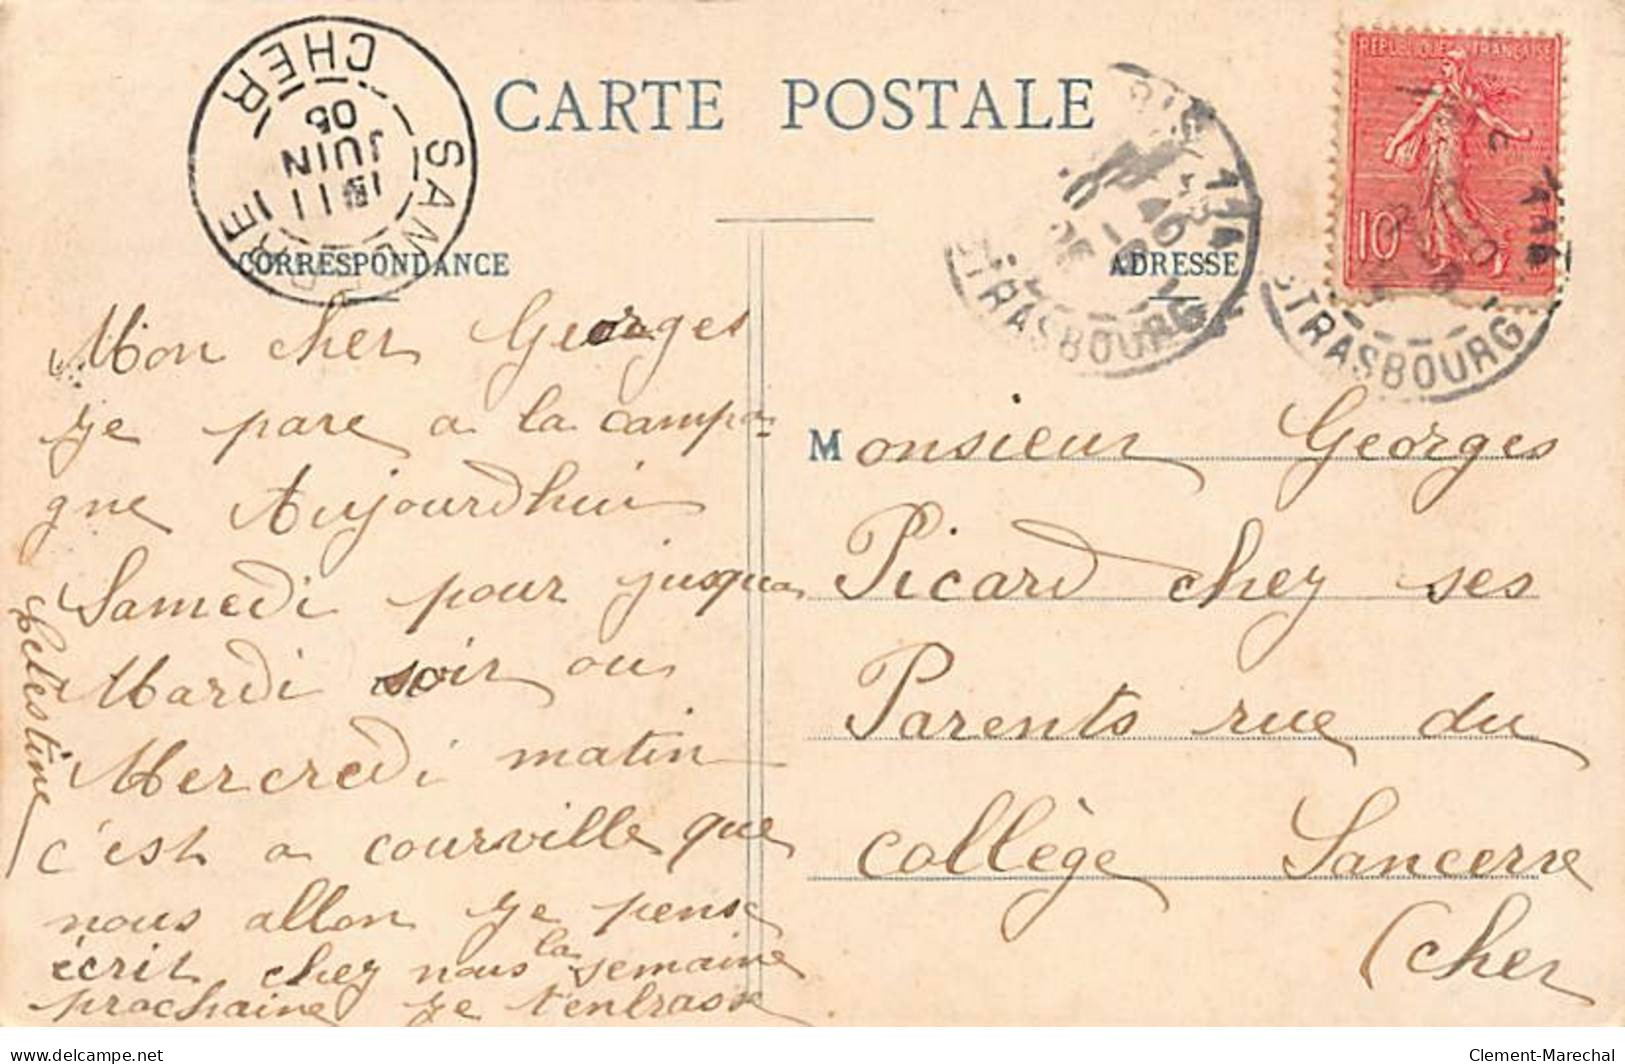 CARTE POSTALE
CORRESPONDANCE
ADRESSE
SANCERRE
CHER
11
JUIN
05
STRASBOURG
STRASBOURG
REPUBLIQUE FRANÇAISE
10
Mon cher Georges
je pare a la campa-
gne Aujourdhui
Samedi pour jusqua
Mardi soir ou
Mercredi matin
c'est a courville que
nous allon je pense
écrit chez nous la semaine
prochaine je t'enbrasse
Celestine
Monsieur Georges
Picard chez ses
Parents rue du
collège Sancerre
(cher
delcampe.net
Clement-Marechal